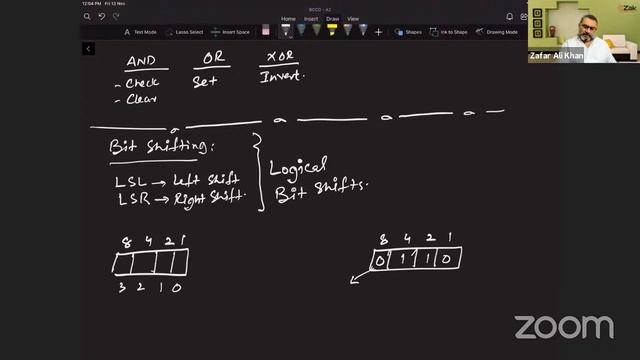 12:04 PM Fri 13 Nov
BCCO - A2
Text Mode
Lasso Select
Insert Space
Shapes
Ink to Shape
Drawing Mode
Zak
Zafar Ali Khan
AND OR XOR
- Check Set Invert.
- Clear
Bit Shifting:
LSL → Left Shift
LSR → Right Shift.
Logical
Bit Shifts.
8 4 2 1
3 2 1 0
8 4 2 1
0 1 1 0
zoom